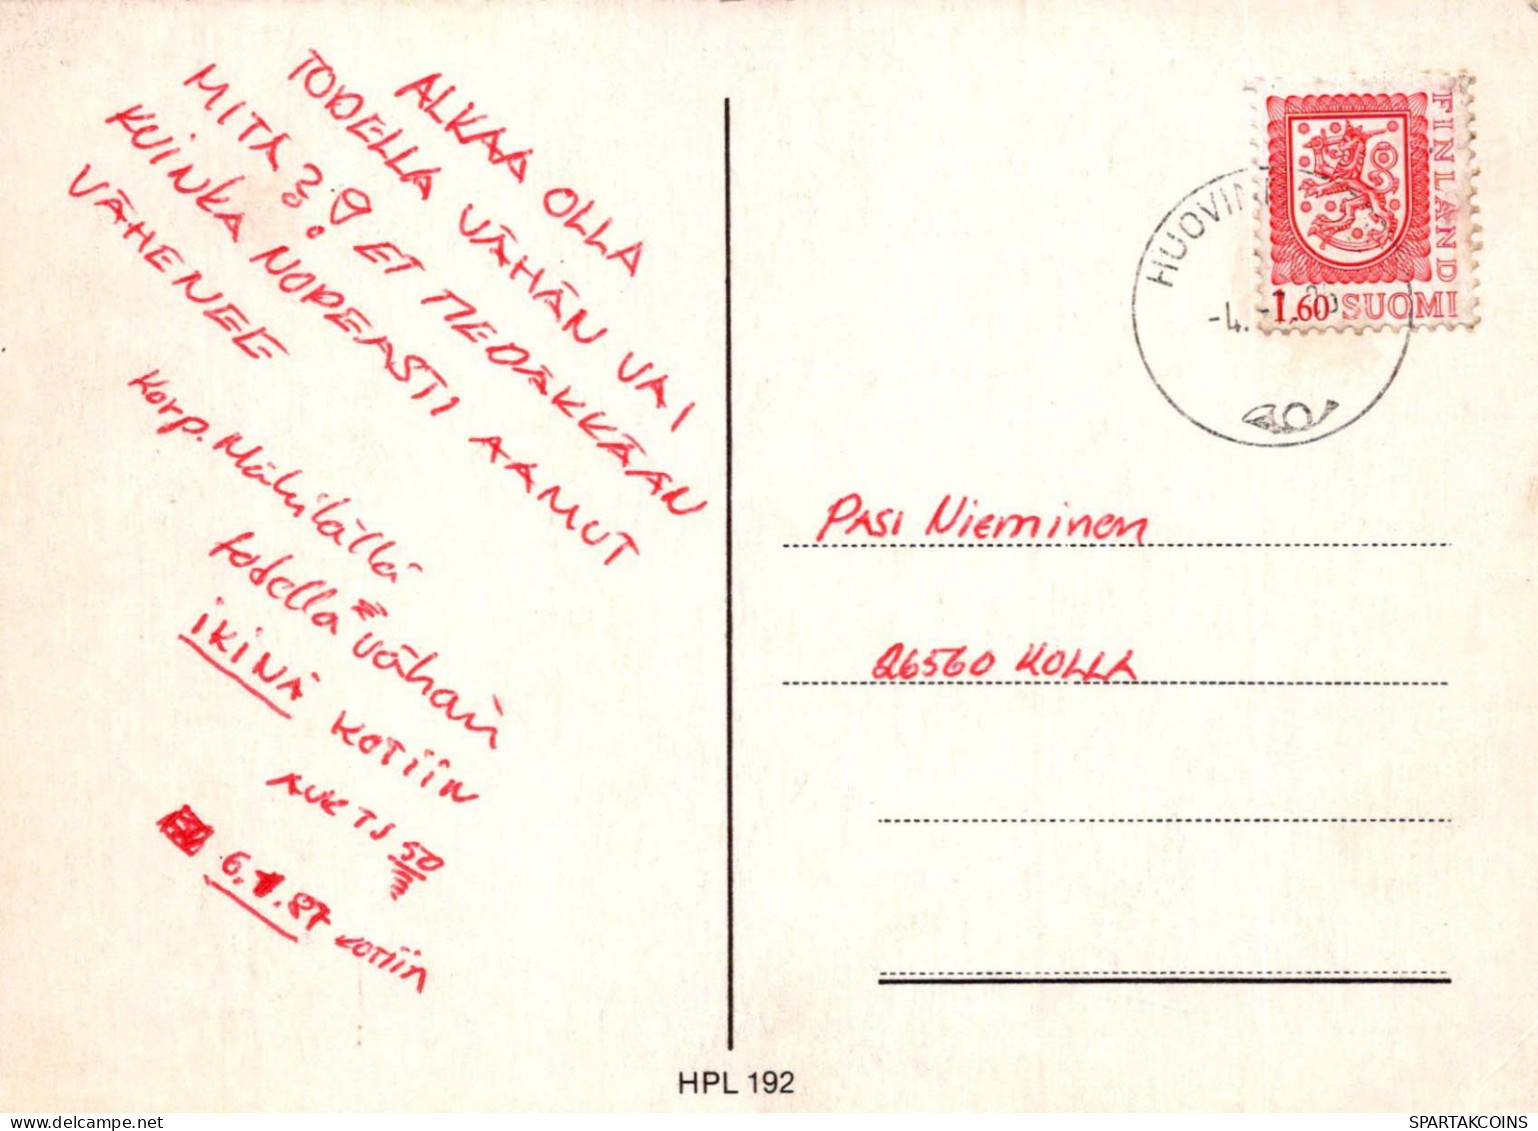 ALKAA OLLA
TODELLA VÄHÄN VAI
MITÄ ET TIEDÄKKÄÄN
KUINKA NOPEASTI AAMUT
VÄHENEE
Korp.
todella vähän
iKiNÄ KOTiiN
50
6.1.87 KOTiiN
HPL 192
FINLAND
1,60 SUOMI
-4.
PASI Nieminen
26560 KOLLA
delcampe.net
SPARTAKCOINS